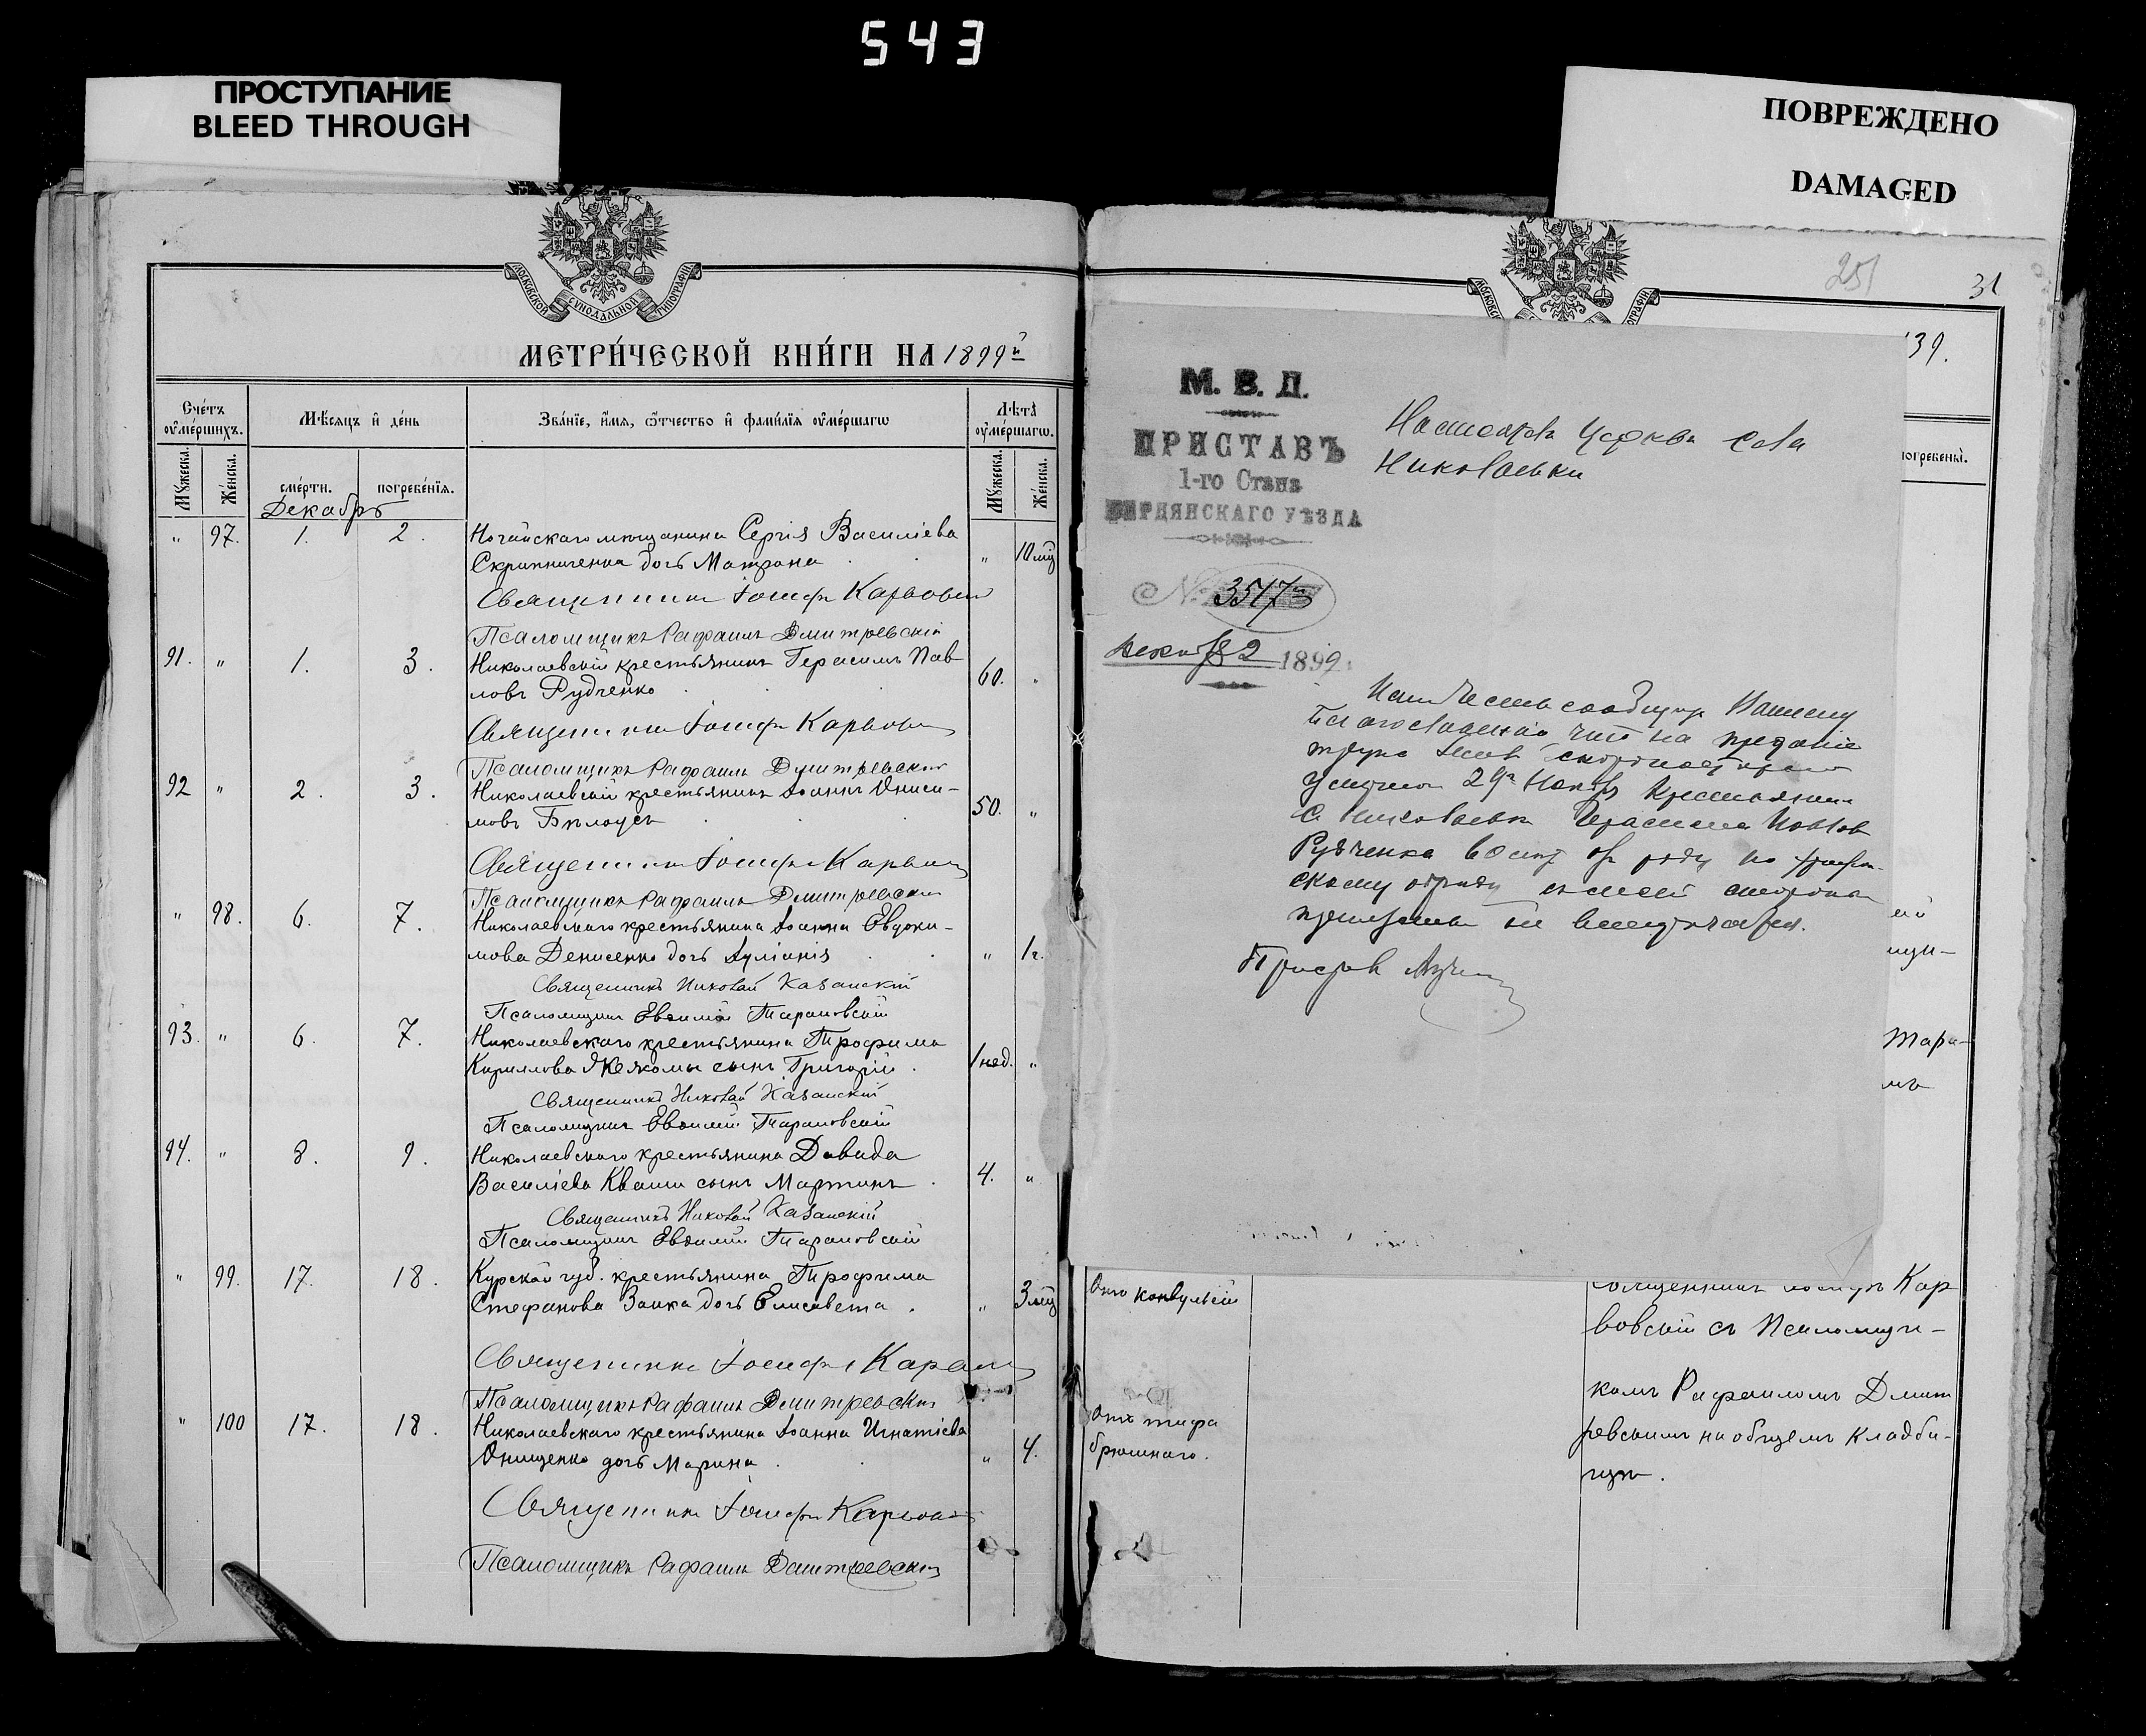 543
ПРОСТУПАНИЕ
BLEED THROUGH
ПОВРЕЖДЕНО
DAMAGED
МОСКОВСКОЙ СУНОДАЛЬНОЙ ТИПОГРАФІИ
МЕТРИ́ЧЕСКОЙ КНИ́ГИ НА 1899й
Сче́тъ ᲂу҆ме́ршихъ.
Мѣ́сяцъ и҆ де́нь
Зва́нїе, и҆́мя, ѻ҆́тчество и҆ фамі́лїя ᲂу҆ме́ршагѡ
Лѣ́та ᲂу҆ме́ршагѡ.
Мꙋ́жеска.
Же́нска.
сме́рти.
погребе́нїя.
Мꙋ́жеска.
Же́нска.
Декабрь
" 97. 1. 2. Ногайскаго мѣщанина Сергія Василіева
Скрипниченка дочь Матрона " 10 мц
Священникъ Іосифъ Карвовскій
Псаломщикъ Рафаилъ Дмитревскій
91. " 1. 3. Николаевскій крестьянинъ Герасимъ Пав
ловъ Рудченко 60. "
Священникъ Іосифъ Карвовскій
Псаломщикъ Рафаилъ Дмитревскій
92 " 2. 3. Николаевскій крестьянинъ Іоаннъ Ониси-
мовъ Бѣлоусъ 50. "
Священникъ Іосифъ Карвовскій
Псаломщикъ Рафаилъ Дмитревскій
" 98. 6. 7. Николаевскаго крестьянина Іоанна Евдоки-
мова Денисенко дочь Іуліанія " 1 г.
Священникъ Николай Казанскій
Псаломщикъ Евѳимій Тарановскій
93. " 6. 7. Николаевскаго крестьянина Трофима
Кириллова сынъ Григорій 1 нед. "
Священникъ Николай Казанскій
Псаломщикъ Евѳимій Тарановскій
94. " 8. 9. Николаевскаго крестьянина Давида
Василіева Кваши сынъ Мартинъ 4. "
Священникъ Николай Казанскій
Псаломщикъ Евѳимій Тарановскій
" 99. 17. 18. Курской губ. крестьянина Трофима
Стефанова Заика дочь Елисавета " 3 мц
Священникъ Іосифъ Карвовскій
Псаломщикъ Рафаилъ Дмитревскій
" 100 17. 18. Николаевскаго крестьянина Іоанна Игнатіева
Онищенко дочь Марина " 4.
Священникъ Іосифъ Карвовскій
Псаломщикъ Рафаилъ Дмитревскій
251
31
39.
погребены̀.
М. В. Д.
ПРИСТАВЪ
1-го Стана
БЕРДЯНСКАГО УѢЗДА
№ 3517
декабр 2 1899.
Настоятелю Церкви села
Николаевки
Имѣю честь сообщить Вашему
Благословенію что на преданіе
землѣ скоропостижно
умершаго 29го Нояб крестьянина
с. Николаевки Герасима Павлов
Рудченка по христіан-
скому обряду съ моей стороны
препятствій не встрѣчается.
Приставъ
ій
щи-
Тара-
мъ
Отъ конвульсій
Священникъ Іосифъ Кар
вовскій съ Псаломщи-
комъ Рафаиломъ Дмит
ревскимъ на общемъ кладби-
щѣ.
Отъ тифа
брюшнаго.